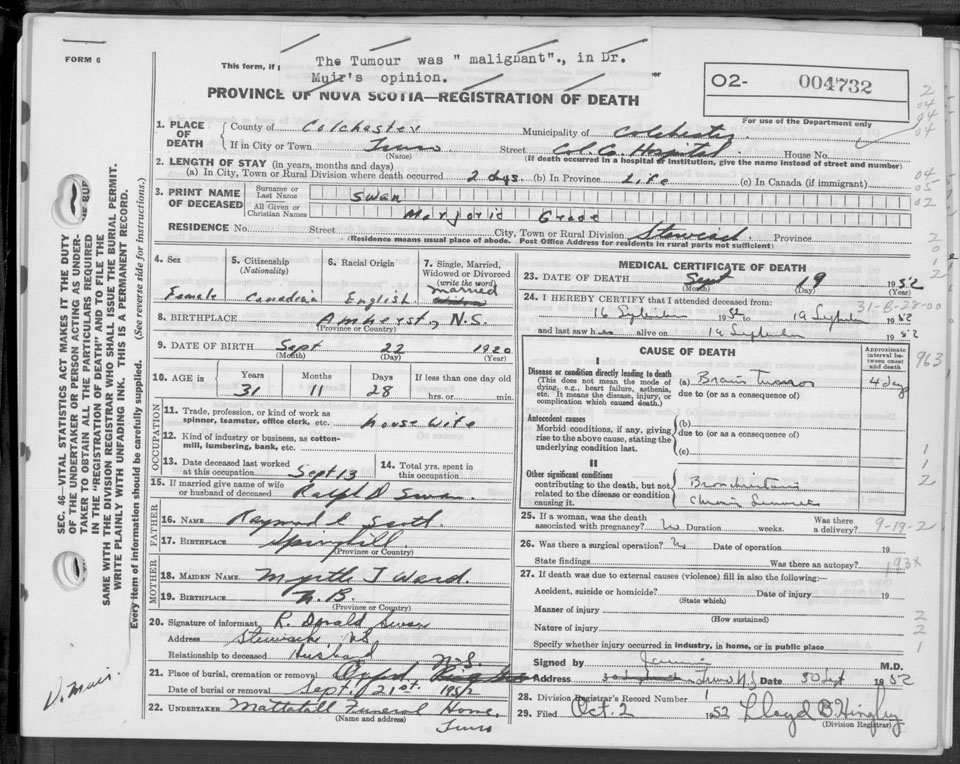 FORM 6
This form, if
The Tumour was " malignant"., in Dr.
Muir's opinion.
or
PROVINCE OF NOVA SCOTIA—REGISTRATION OF DEATH
O2- 004732
For use of the Department only
1. PLACE OF DEATH
County of Colchester Municipality of Colchester
If in City or Town Truro Street Col. Co. Hospital House No.
(Name) (If death occurred in a hospital or institution, give the name instead of street and number)
2. LENGTH OF STAY (in years, months and days)
(a) In City, Town or Rural Division where death occurred 2 days. (b) In Province Life (c) In Canada (if immigrant)
3. PRINT NAME OF DECEASED
Surname or Last Name Swan
All Given or Christian Names Marjorie Grace
RESIDENCE No. Street City, Town or Rural Division Stewiack Province
(Residence means usual place of abode. Post Office Address for residents in rural parts not sufficient)
4. Sex Female
5. Citizenship (Nationality) Canadian
6. Racial Origin English
7. Single, Married, Widowed or Divorced (write the word) married
8. BIRTHPLACE Amherst, N.S.
(Province or Country)
9. DATE OF BIRTH Sept 22 1920
(Month) (Day) (Year)
10. AGE in Years Months Days If less than one day old
31 11 28 hrs. or min.
OCCUPATION
11. Trade, profession, or kind of work as spinner, teamster, office clerk, etc. house wife
12. Kind of industry or business, as cotton-mill, lumbering, bank, etc.
13. Date deceased last worked at this occupation Sept 13
14. Total yrs. spent in this occupation
15. If married give name of wife or husband of deceased Ralph D Swan
FATHER
16. NAME Raymond Scott
17. BIRTHPLACE Springhill
(Province or Country)
MOTHER
18. MAIDEN NAME Myrtle J Ward.
19. BIRTHPLACE N.B.
(Province or Country)
20. Signature of informant R. Donald Swan
Address Stewiacke NS
Relationship to deceased Husband
21. Place of burial, cremation or removal Oxford N.S.
Date of burial or removal Sept. 21st. 1952
22. UNDERTAKER Mattatall Funeral Home.
(Name and address) Truro
MEDICAL CERTIFICATE OF DEATH
23. DATE OF DEATH Sept 19 1952
(Month) (Day) (Year)
24. I HEREBY CERTIFY that I attended deceased from:
31-B-28-00
16 September 1952 to 19 September 1952
and last saw her alive on 19 September 1952
CAUSE OF DEATH
Approximate interval between onset and death
I
Disease or condition directly leading to death
(This does not mean the mode of dying, e.g., heart failure, asthenia, etc. It means the disease, injury, or complication which caused death.)
(a) Brain Tumor 4 days
due to (or as a consequence of)
Antecedent causes
Morbid conditions, if any, giving rise to the above cause, stating the underlying condition last.
(b)
due to (or as a consequence of)
(c)
II
Other significant conditions contributing to the death, but not related to the disease or condition causing it.
Bronchiectasis
25. If a woman, was the death associated with pregnancy? No Duration weeks. Was there a delivery? 9-19-2
26. Was there a surgical operation? No Date of operation 19
State findings Was there an autopsy? 193x
27. If death was due to external causes (violence) fill in also the following:—
Accident, suicide or homicide? Date of injury 19
(State which)
Manner of injury
(How sustained)
Nature of injury
Specify whether injury occurred in industry, in home, or in public place
Signed by M.D.
Address Truro N.S. Date 30 Sept 1952
28. Division Registrar's Record Number 1
29. Filed Oct. 2 1952 Lloyd B Hingley
(Division Registrar)
SEC. 46—VITAL STATISTICS ACT MAKES IT THE DUTY
OF THE UNDERTAKER OR PERSON ACTING AS UNDER-
TAKER TO OBTAIN ALL THE PARTICULARS REQUIRED
IN THE "REGISTRATION OF DEATH" AND TO FILE THE
SAME WITH THE DIVISION REGISTRAR WHO SHALL ISSUE THE BURIAL PERMIT.
WRITE PLAINLY WITH UNFADING INK. THIS IS A PERMANENT RECORD.
Every item of information should be carefully supplied. (See reverse side for instructions.)
D. Muir.
2
04
04
04
05
02
2
0
1
2
963
1
1
2
2
2
1